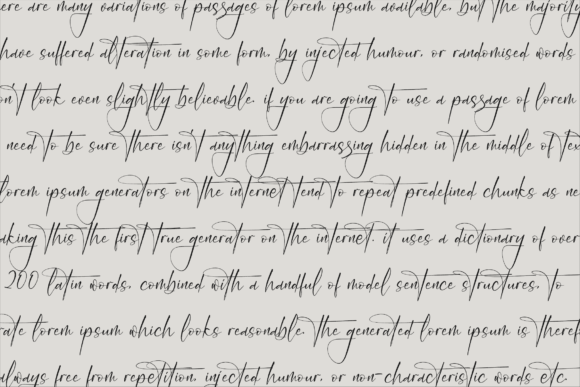 ere are many variations of passages of lorem ipsum available, but the majority
have suffered alteration in some form, by injected humour, or randomised words
on't look even slightly believable. if you are going to use a passage of lorem
need to be sure there isn't anything embarrassing hidden in the middle of tex
lorem ipsum generators on the internet tend to repeat predefined chunks as ne
aking this the first true generator on the internet. it uses a dictionary of over
200 latin words, combined with a handful of model sentence structures, to
rate lorem ipsum which looks reasonable. The generated lorem ipsum is theref
always free from repetition, injected humour, or non-characteristic words etc